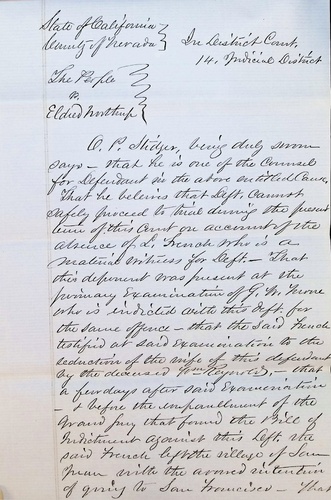 State of California
County of Nevada
In District Court,
14. Judicial District
The People
vs
Eldred Northup
O. P. Stidger, being duly sworn
says – that he is one of the Counsel
for Defendant in the above entitled Cause,
That he believes that Deft. cannot
safely proceed to trial during the present
term of this Court on account of the
absence of L. French who is a
material witness for Deft. – That
this deponent was present at the
primary Examination of G. W.
who is indicted with this Deft. for
the same offence – that the said French
testified at said examination to the
seduction of the wife of this defendant
by the deceased Wm – that
a few days after said Examination
– & before the empannelment of the
Grand Jury that found the Bill of
Indictment against this Deft. the
said French left the village of San
Juan with the avowed intention
of going to San Francisco – That